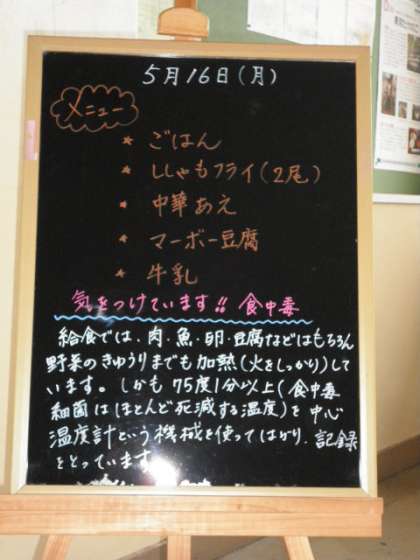 5月16日(月)
メニュー
★ ごはん
★ ししゃもフライ(2尾)
★ 中華あえ
★ マーボー豆腐
★ 牛乳
気をつけています!! 食中毒
給食では、肉・魚・卵・豆腐などはもちろん
野菜のきゅうりまでも加熱(火をしっかり)して
います。しかも75度1分以上(食中毒
細菌はほとんど死滅する温度)を中心
温度計という機械を使ってはかり、記録
をとっています